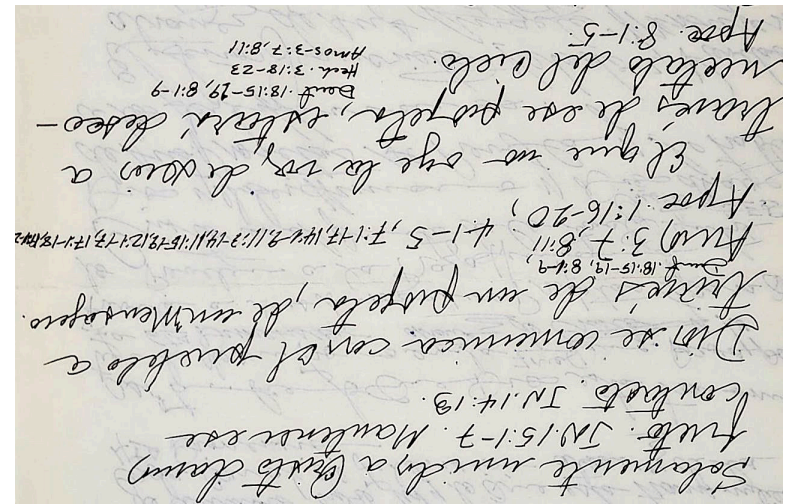 Solamente unidos a Cristo damos
fruto. JN.15:1-7. Mantener ese
contacto. JN.14:13.
Dios se comunica con el pueblo a
través de un profeta, de un Mensajero.
Deut. 18:15-19, 8:1-9,
Amós 3:7, 8:11, 4:1-5, 7:1-17,
Apoc. 1:16-20,
El que no oye la voz de Dios a
través de ese profeta, estará desco-
nectado del Cielo.
Deut. 18:15-19, 8:1-9
Hech. 3:18-23
Amos-3:7,8:11
Apoc. 8:1-5.